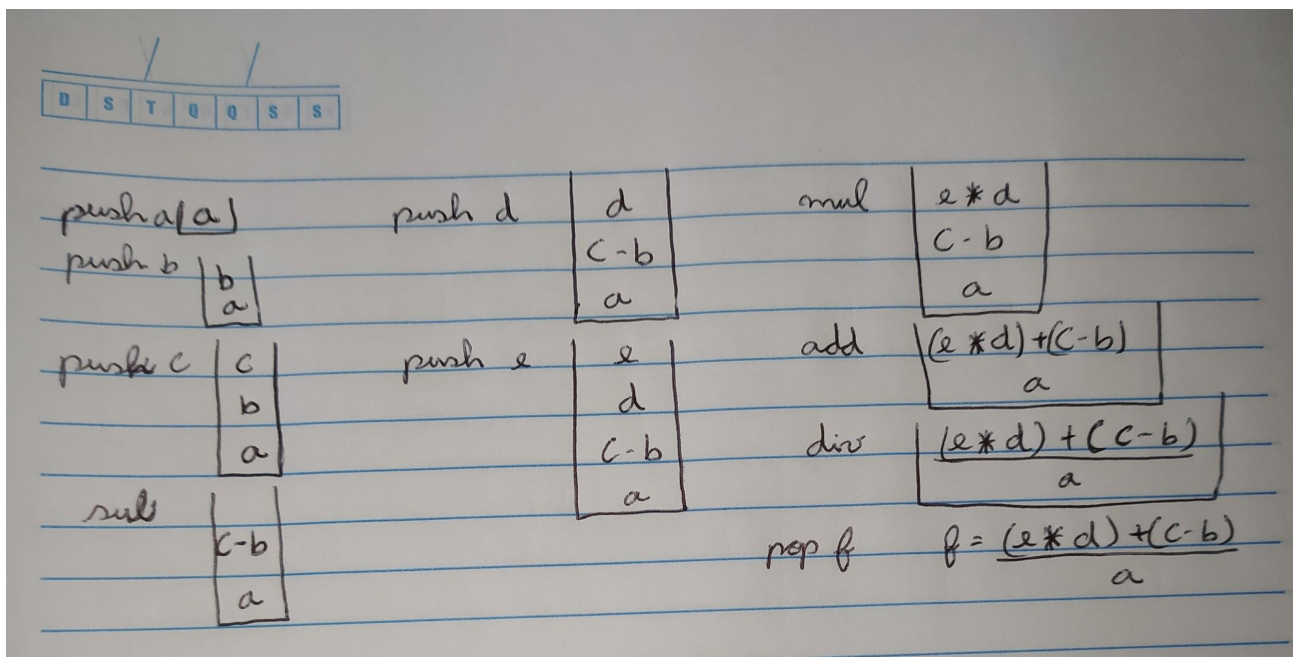 D S T Q Q S S
push a a
push b b
a
push c c
b
a
sub
c-b
a
push d d
c-b
a
push e e
d
c-b
a
mul e * d
c-b
a
add (e * d)+(c-b)
a
div (e * d) + (c-b)
a
pop f f = (e * d) +(c-b)
a